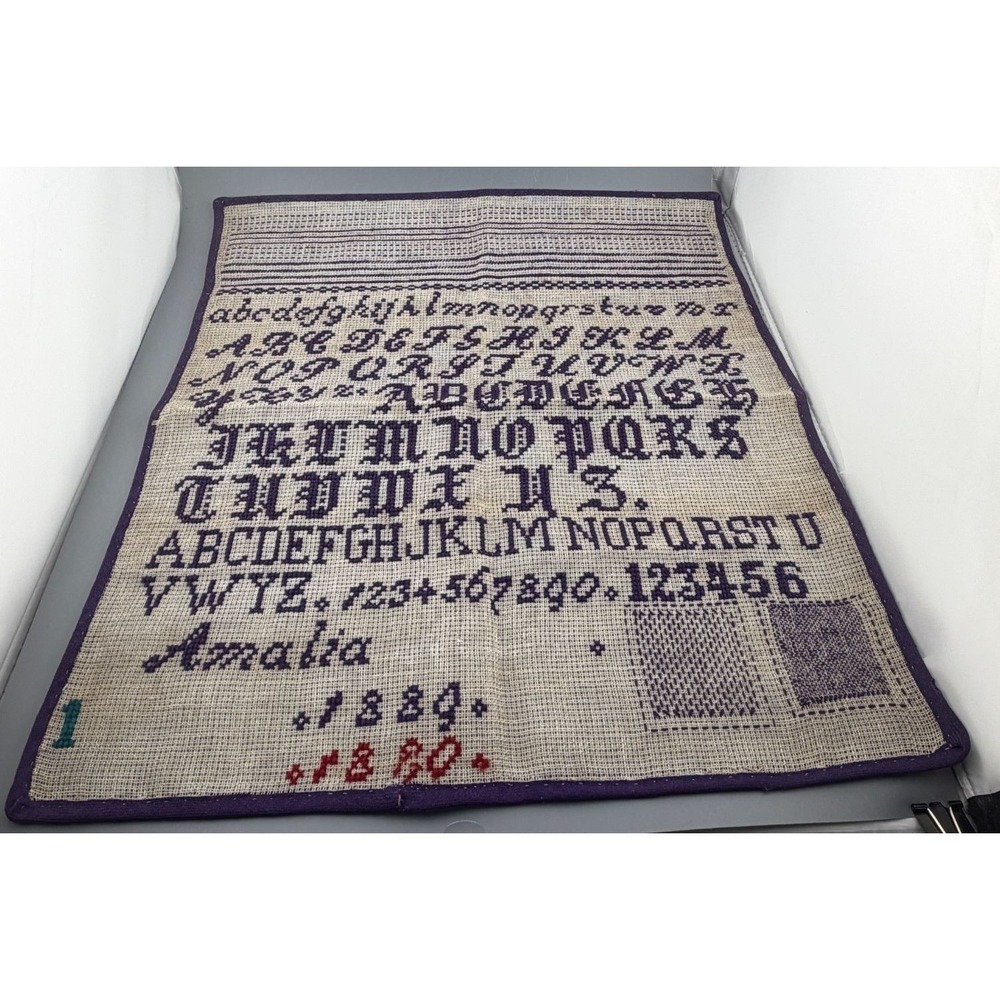 abcdefghijklmnopqrstuvwx
ABCDEFGHIJKLM
NOPQRSTUVWX
YZ ABCDEFGH
IKLMNOPQRS
TUVWXYZ.
ABCDEFGHJKLMNOPQRSTU
VWYZ. 1234567890. 123456
Amalia
.1889.
1
.1880.